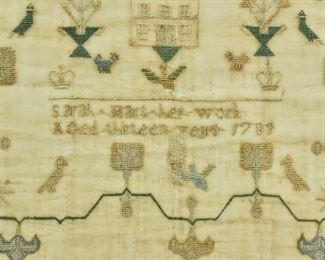 Sarah Hart her Work
Aged thirteen years 1789